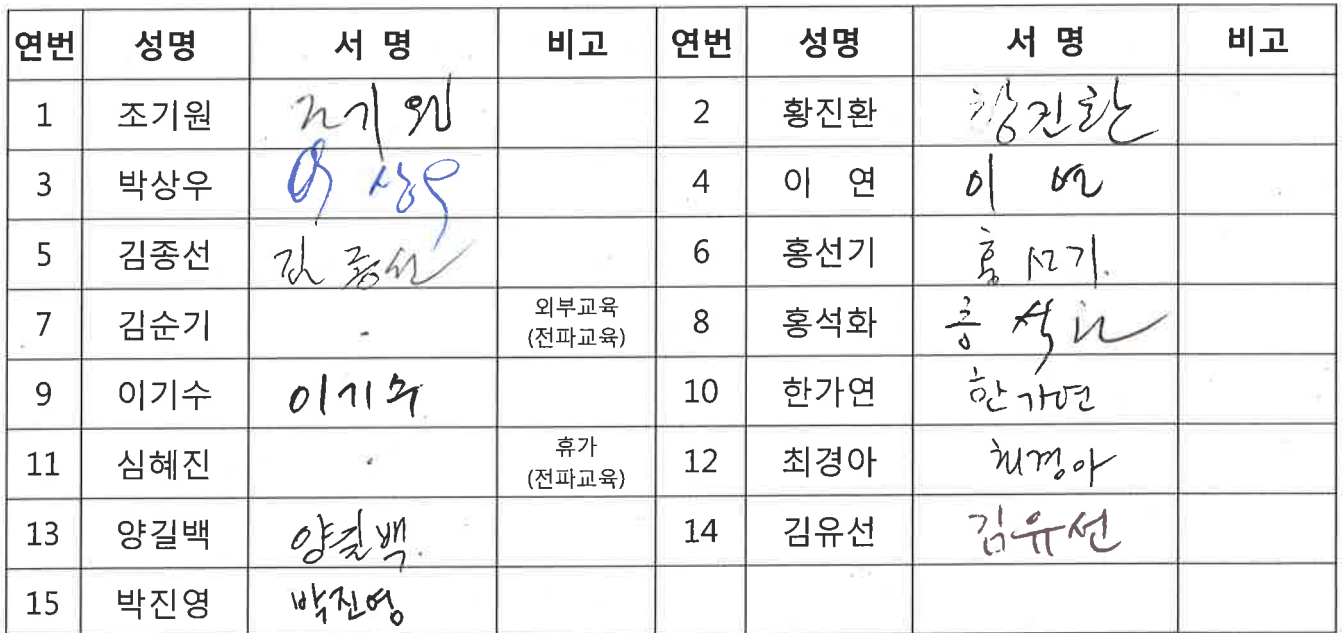 연번 성명 서 명 비고 연번 성명 서 명 비고
1 조기원 조기원 2 황진환 황진환
3 박상우 박상우 4 이 연 이 연
5 김종선 김종선 6 홍선기 홍선기.
7 김순기 - 외부교육 8 홍석화 홍석화
(전파교육)
9 이기수 이기수 10 한가연 한가연
11 심혜진 - 휴가 12 최경아 최경아
(전파교육)
13 양길백 양길백. 14 김유선 김유선
15 박진영 박진영